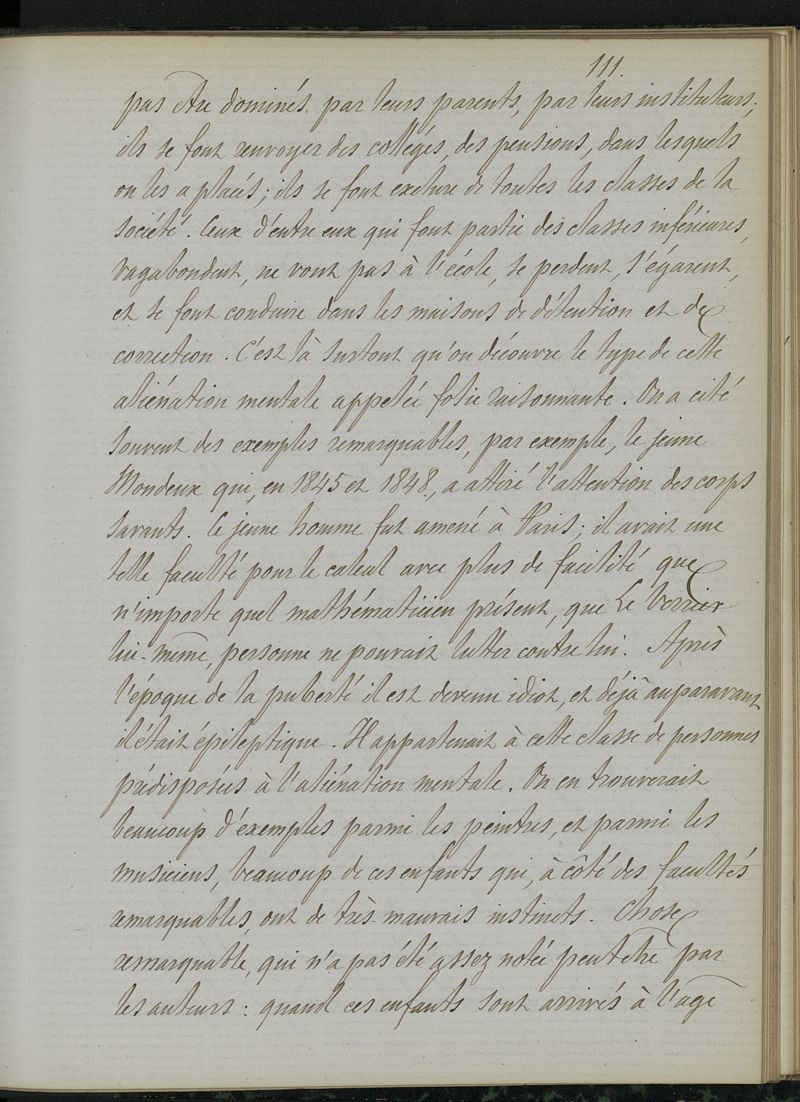 111.
pas être dominés par leurs parents, par leurs instituteurs;
ils se font renvoyer des collèges, des pensions, dans lesquels
on les a placés; ils se font exclure de toutes les classes de la
société. Ceux d'entre eux qui font partie des classes inférieures,
vagabondent, ne vont pas à l'école, se perdent, s'égarent,
et se font conduire dans les maisons de détention et de
correction. C'est là surtout qu'on découvre le type de cette
aliénation mentale appelée folie raisonnante. On a cité
souvent des exemples remarquables, par exemple, le jeune
Mondeux qui, en 1845 et 1848, a attiré l'attention des corps
savants. Ce jeune homme fut amené à Paris; il avait une
telle faculté pour le calcul avec plus de facilité que
n'importe quel mathématicien présent, que Le Verrier
lui-même, personne ne pouvait lutter contre lui. Après
l'époque de la puberté il est devenu idiot, et déjà auparavant
il était épileptique. Il appartenait à cette classe de personnes
prédisposées à l'aliénation mentale. On en trouverait
beaucoup d'exemples parmi les peintres, et parmi les
musiciens, beaucoup de ces enfants qui, à côté des facultés
remarquables, ont de très mauvais instincts. Chose
remarquable, qui n'a pas été assez notée peut être par
les auteurs: quand ces enfants sont arrivés à l'âge